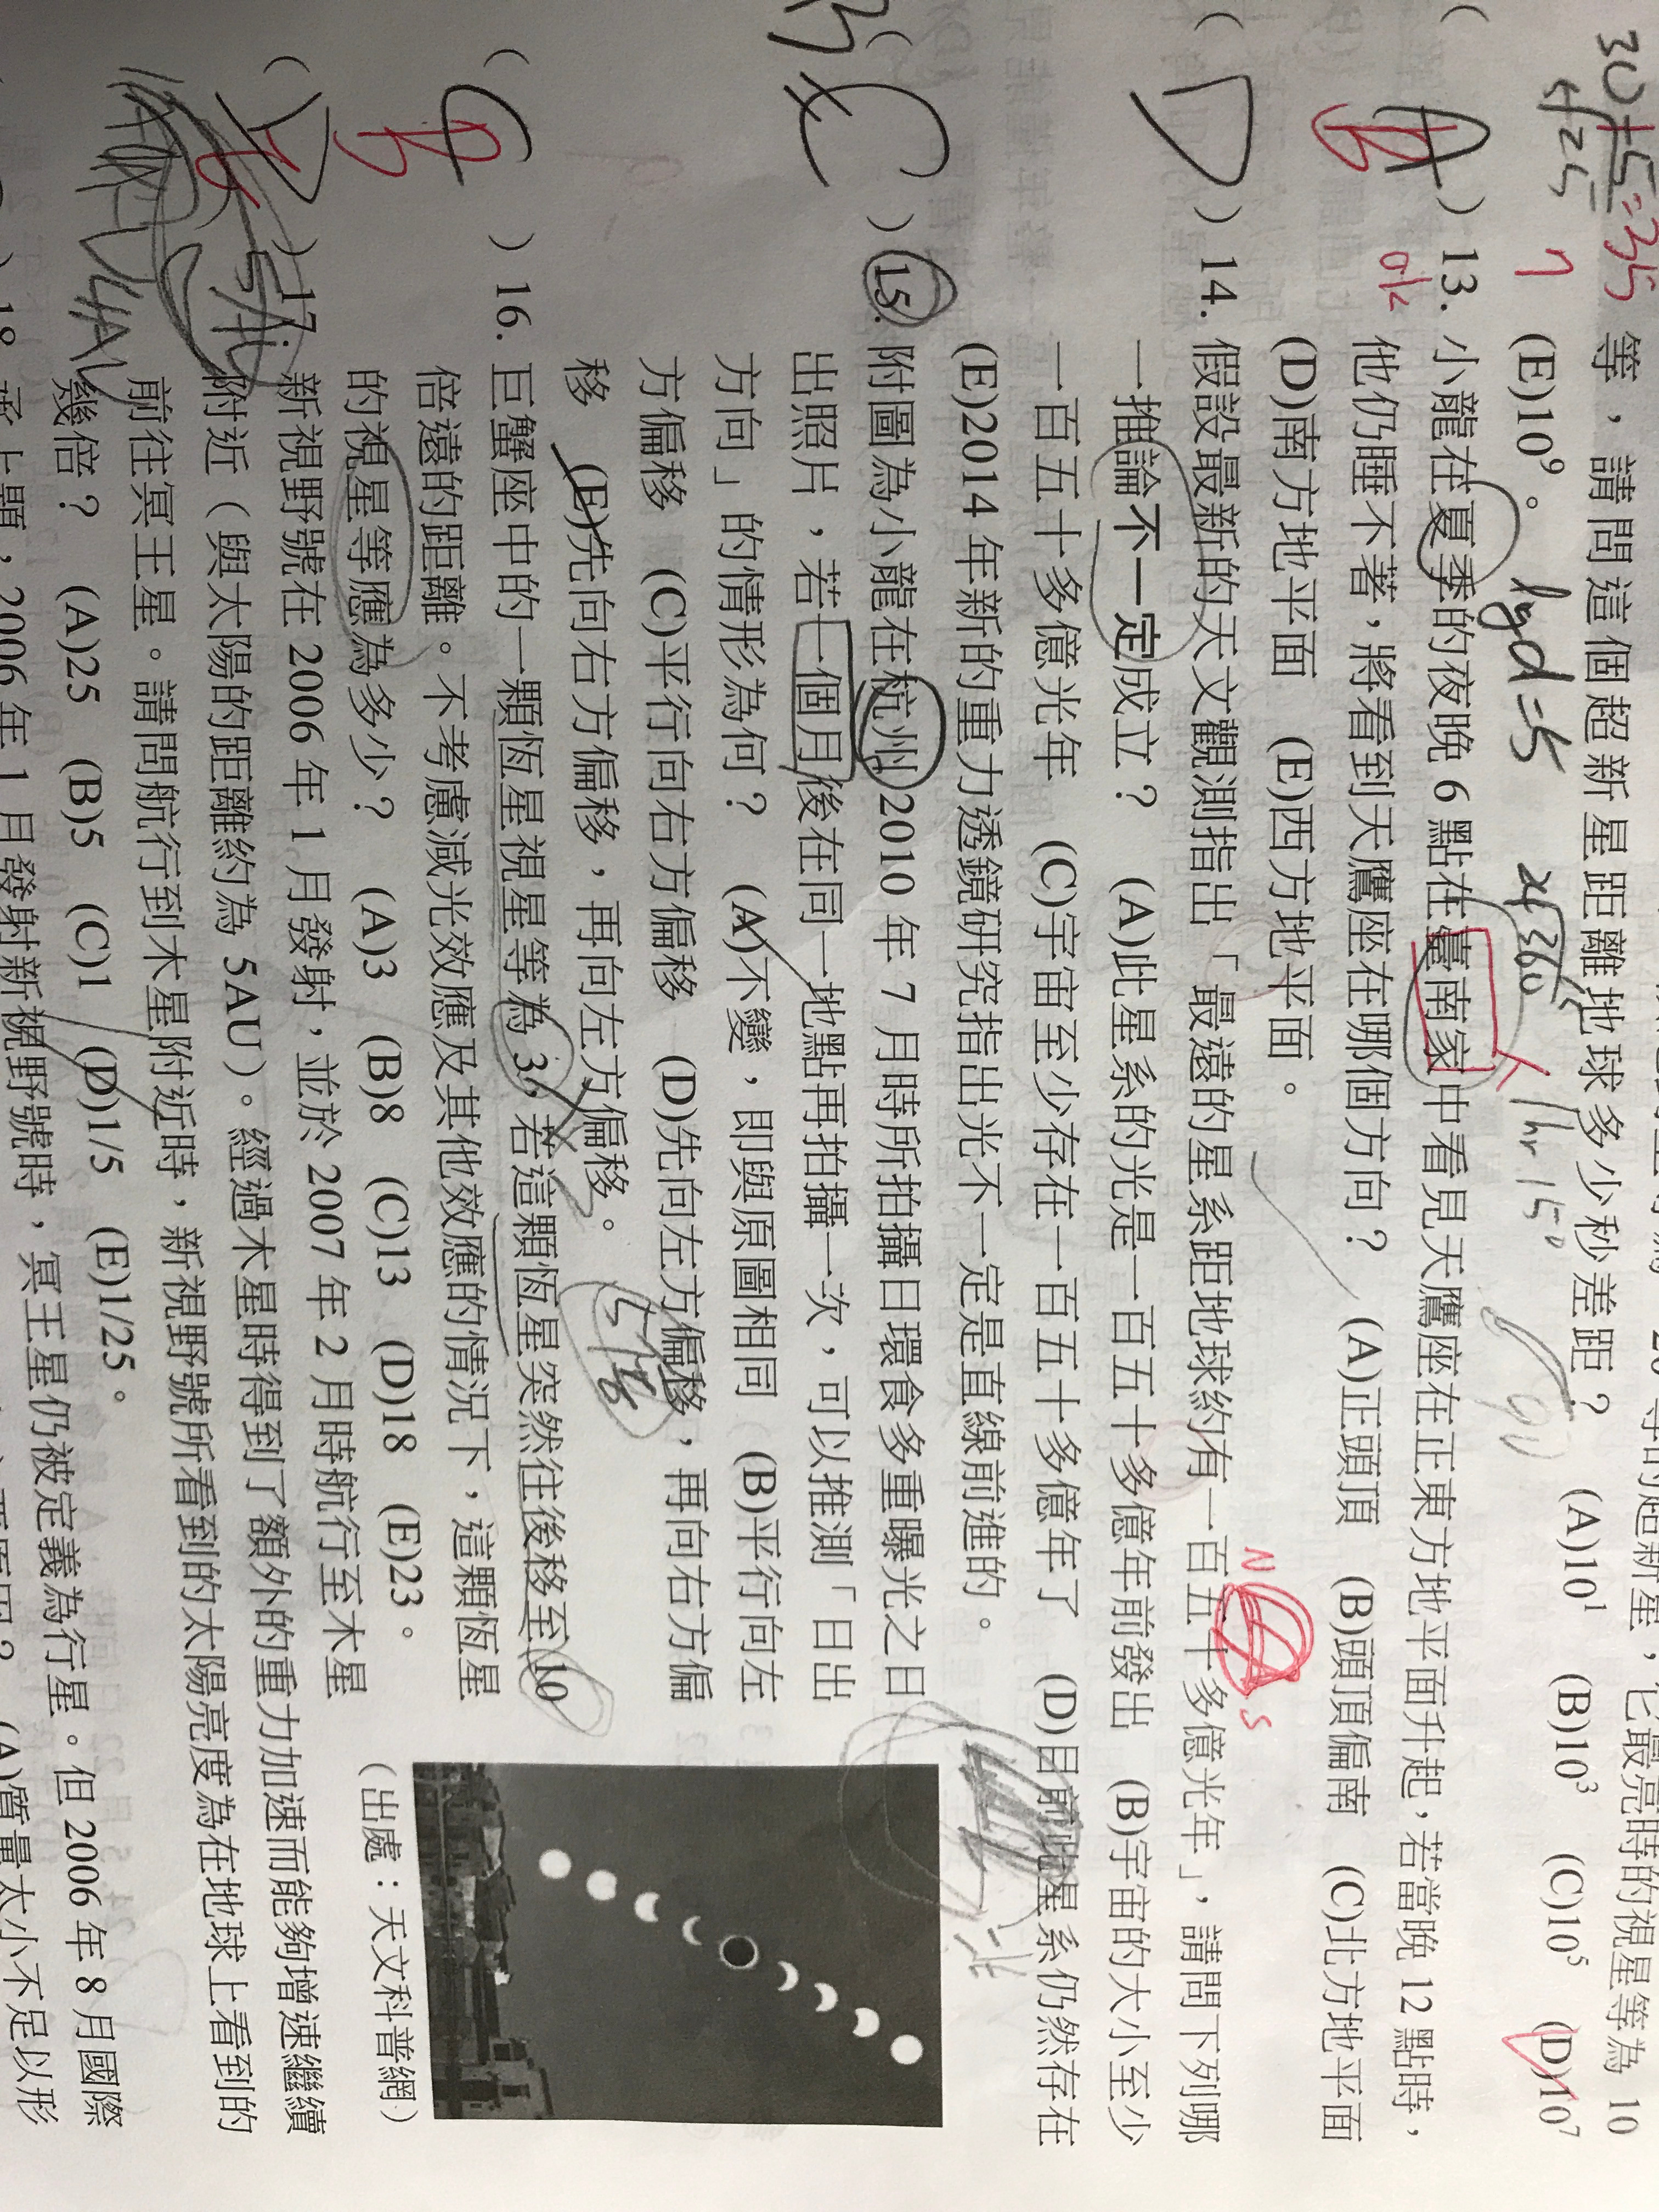 等，請問這個超新星距離地球多少秒差距？ (A)10¹ (B)10³ (C)10⁵ (D)10⁷
(E)10⁹。
30+5=35
lgd=5
1hr 15°
( ) 13. 小龍在夏季的夜晚 6 點在臺南家中看見天鷹座在正東方地平面升起，若當晚 12 點時，
他仍睡不著，將看到天鷹座在哪個方向？ (A)正頭頂 (B)頭頂偏南 (C)北方地平面
(D)南方地平面 (E)西方地平面。
N S
( D ) 14. 假設最新的天文觀測指出「最遠的星系距地球約有一百五十多億光年」，請問下列哪
一推論不一定成立？ (A)此星系的光是一百五十多億年前發出 (B)宇宙的大小至少
一百五十多億光年 (C)宇宙至少存在一百五十多億年了 (D)目前此星系仍然存在
(E)2014 年新的重力透鏡研究指出光不一定是直線前進的。
( C ) 15. 附圖為小龍在杭州2010 年 7 月時所拍攝日環食多重曝光之日
出照片，若一個月後在同一地點再拍攝一次，可以推測「日出
方向」的情形為何？ (A)不變，即與原圖相同 (B)平行向左
方偏移 (C)平行向右方偏移 (D)先向左方偏移，再向右方偏
移 (E)先向右方偏移，再向左方偏移。
( ) 16. 巨蟹座中的一顆恆星視星等為 3，若這顆恆星突然往後移至10
倍遠的距離。不考慮減光效應及其他效應的情況下，這顆恆星
的視星等應為多少？ (A)3 (B)8 (C)13 (D)18 (E)23。
(出處：天文科普網)
( ) 17. 新視野號在 2006 年 1 月發射，並於 2007 年 2 月時航行至木星
附近（與太陽的距離約為 5AU）。經過木星時得到了額外的重力加速而能夠增速繼續
前往冥王星。請問航行到木星附近時，新視野號所看到的太陽亮度為在地球上看到的
幾倍？ (A)25 (B)5 (C)1 (D)1/5 (E)1/25。
) 18. 承上題，2006 年 1 月發射新視野號時，冥王星仍被定義為行星。但 2006 年 8 月國際
(A)質量太小不足以形